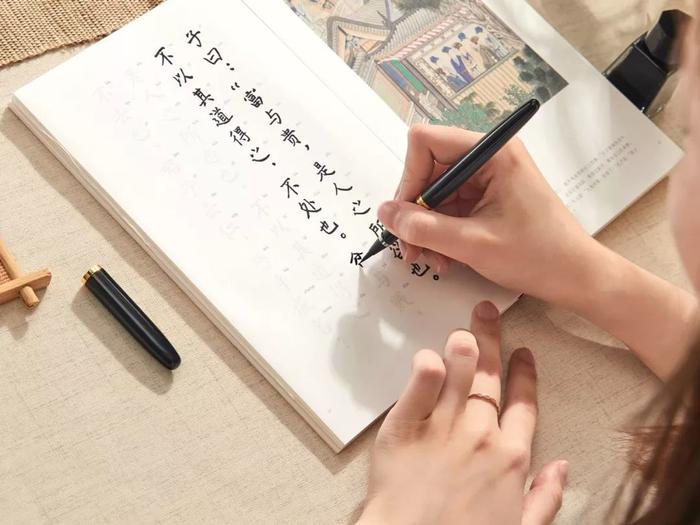 子曰：“富与贵，是人之所欲也。
不以其道得之，不处也。